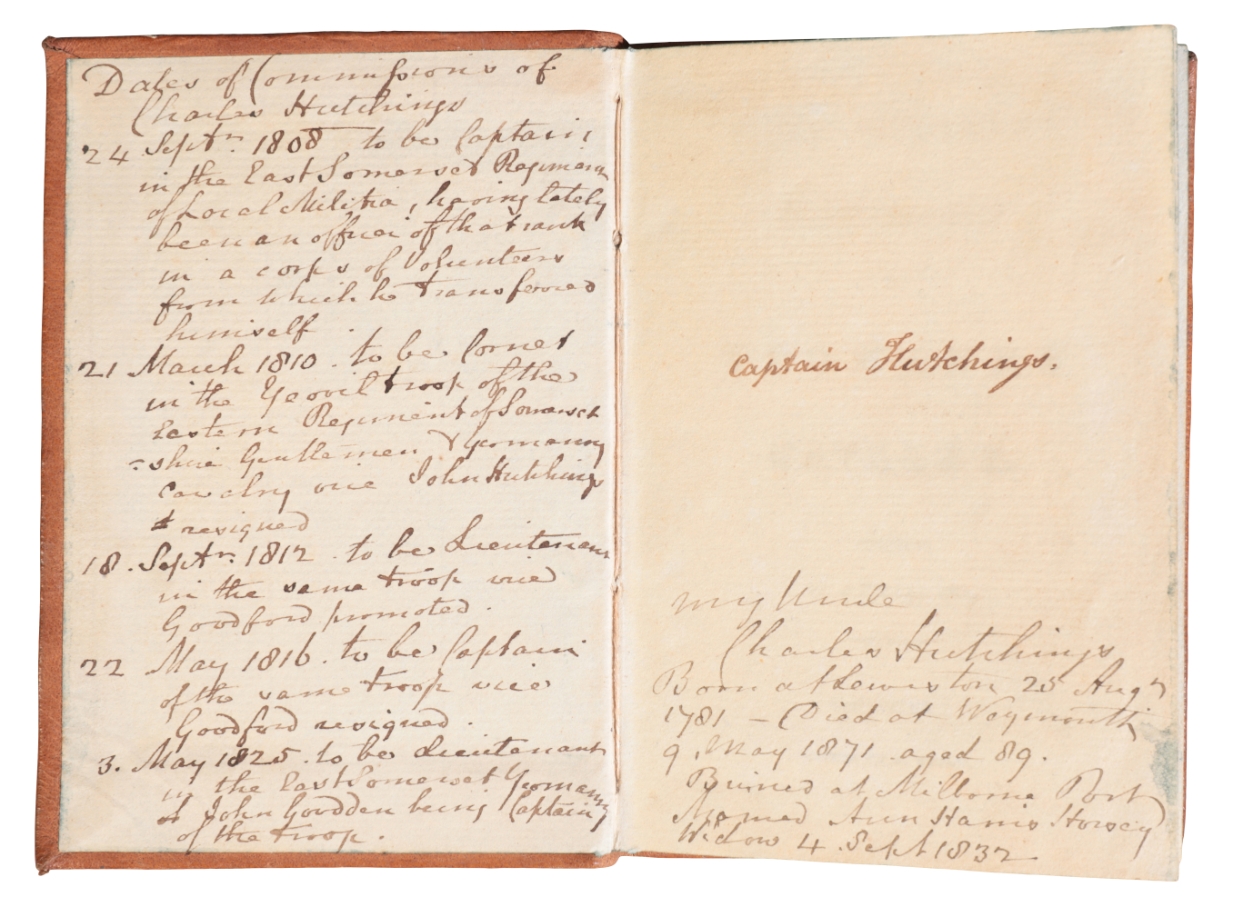 Dates of Commissions of
Charles Hutchings
24 Septr. 1808 to be Captain
in the East Somerset Regiment
of Local Militia, having lately
been an officer of that rank
in a corps of Volunteers
from which he transferred
himself.
21 March 1810. to be Cornet
in the Yeovil troop of the
Eastern Regiment of Somerset
-shire Gentlemen & Yeomanry
Cavalry vice John Hutchings
resigned
18. Septr. 1812. to be Lieutenant
in the same troop vice
Goodford promoted.
22 May 1816. to be Captain
of the same troop vice
Goodford resigned.
3. May 1825. to be Lieutenant
in the East Somerset Yeomanry
John Goodden being Captain
of the troop.
Captain Hutchings.
my Uncle
Charles Hutchings
Born at Leweston 25 Augt
1781 – Died at Weymouth
9. May 1871. aged 89.
Buried at Milborne Port
Married Ann Harris
Widow 4. Sept 1832